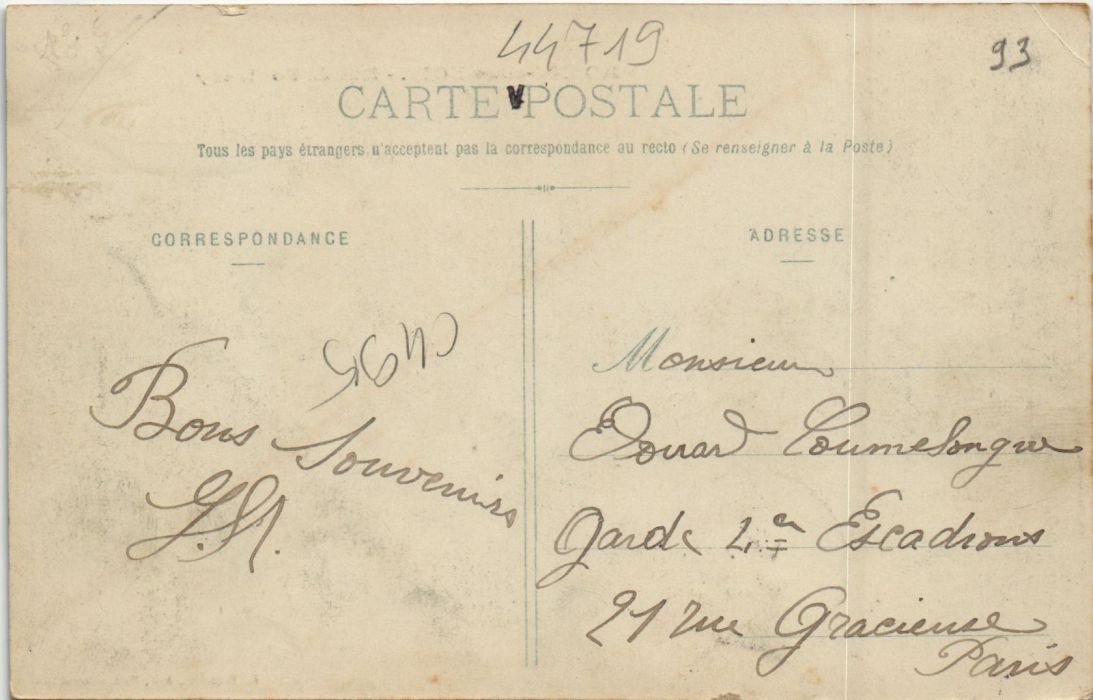 44719
93
CARTE POSTALE
Tous les pays étrangers n'acceptent pas la correspondance au recto (Se renseigner à la Poste)
CORRESPONDANCE
ADRESSE
Bons Souvenirs
Monsieur
Edouard Coumelongue
Garde 2e Escadrons
21 rue Gracieuse
Paris